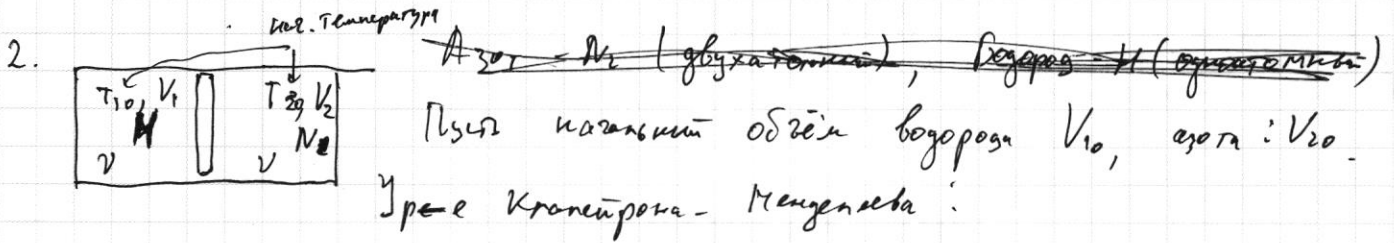 2.
нач. температура
T₁₀, V₁
H
ν
T₂₀, V₂
N
ν
Азот - N₂ (двухатомный), Водород - H (одноатомный)
Пусть начальный объём водорода V₁₀, азота : V₂₀.
Ур-е Клапейрона - Менделеева :